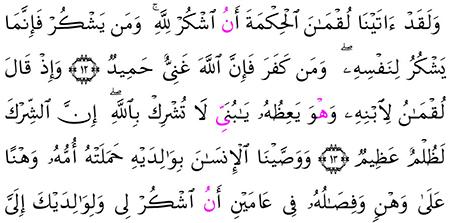 وَلَقَدْ ءَاتَيْنَا لُقْمَـٰنَ ٱلْحِكْمَةَ أَنُ ٱشْكُرْ لِلَّهِ ۚ وَمَن يَشْكُرْ فَإِنَّمَا
يَشْكُرُ لِنَفْسِهِۦ ۖ وَمَن كَفَرَ فَإِنَّ ٱللَّهَ غَنِىٌّ حَمِيدٌ ١٢ وَإِذْ قَالَ
لُقْمَـٰنُ لِٱبْنِهِۦ وَهْوَ يَعِظُهُۥ يَـٰبُنَىِّ لَا تُشْرِكْ بِٱللَّهِ ۖ إِنَّ ٱلشِّرْكَ
لَظُلْمٌ عَظِيمٌ ١٣ وَوَصَّيْنَا ٱلْإِنسَـٰنَ بِوَٰلِدَيْهِ حَمَلَتْهُ أُمُّهُۥ وَهْنًا
عَلَىٰ وَهْنٍ وَفِصَـٰلُهُۥ فِى عَامَيْنِ أَنُ ٱشْكُرْ لِى وَلِوَٰلِدَيْكَ إِلَىَّ